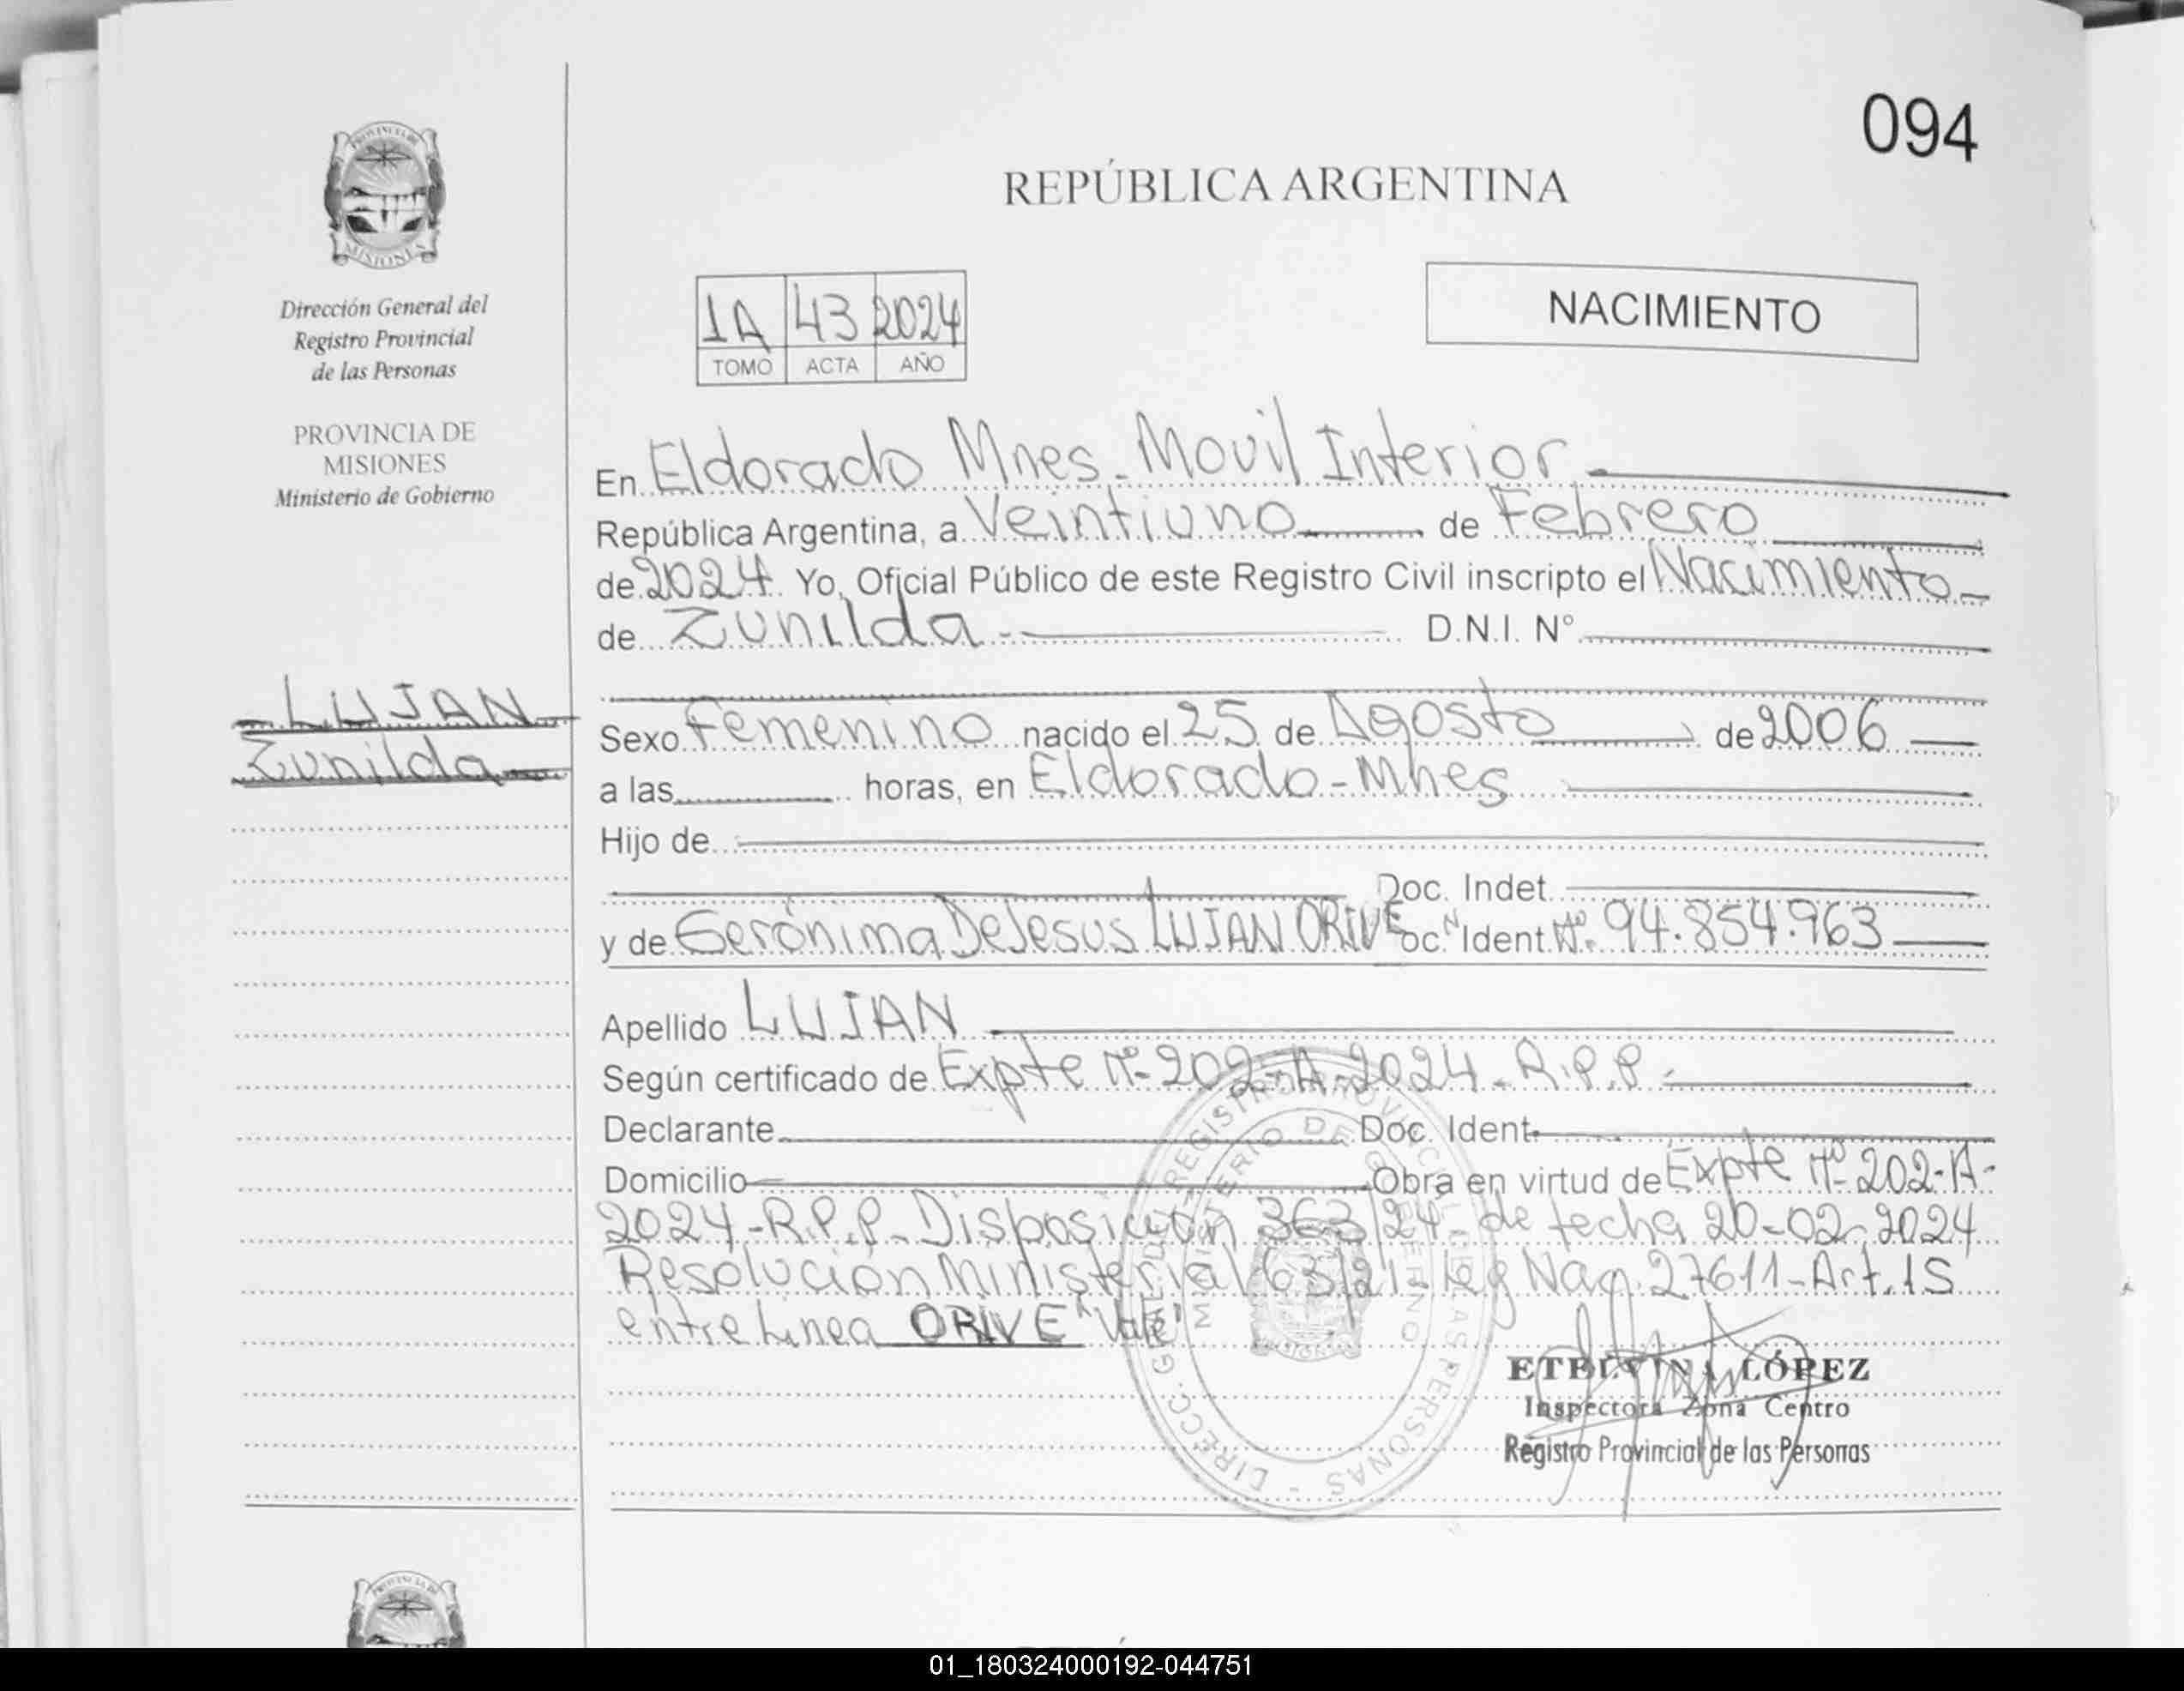 094
REPÚBLICA ARGENTINA
PROVINCIA DE
MISIONES
Dirección General del
Registro Provincial
de las Personas
PROVINCIA DE
MISIONES
Ministerio de Gobierno
1A 43 2024
TOMO ACTA AÑO
NACIMIENTO
En Eldorado Mnes. Movil Interior
República Argentina, a Veintiuno de Febrero
de 2024. Yo, Oficial Público de este Registro Civil inscripto el Nacimiento
de Zunilda D.N.I. N°
LUJAN
Zunilda
Sexo Femenino nacido el 25 de Agosto de 2006
a las horas, en Eldorado - Mnes
Hijo de
Doc. Indet.
y de Gerónima De Jesus LUJAN ORIVE Doc. Ident. Nº 94.854.963
Apellido LUJAN
Según certificado de Expte Nº 202-A-2024. R.P.P.
Declarante Doc. Ident.
Domicilio Obra en virtud de Expte Nº 202-A-
2024-R.P.P. Disposición 363/24 de fecha 20-02-2024
Resolución Ministerial 63/21- Nac. 27611-Art. 15
entre Linea ORIVE "Vale"
DIRECC. GRAL. DEL REGISTRO PROVINCIAL DE LAS PERSONAS
MINISTERIO DE GOBIERNO
ETELVINA LÓPEZ
Inspectora Zona Centro
Registro Provincial de las Personas
01_180324000192-044751